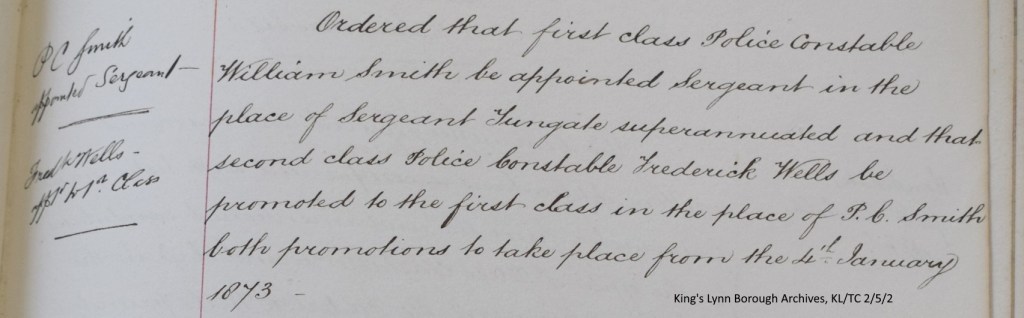 PC Smith
appointed Sergeant
Fredk Wells
to 1st Class
Ordered that first class Police Constable
William Smith be appointed Sergeant in the
place of Sergeant Tungate superannuated and that
second class Police Constable Frederick Wells be
promoted to the first class in the place of P.C. Smith
both promotions to take place from the 4th January
1873 -
King's Lynn Borough Archives, KL/TC 2/5/2